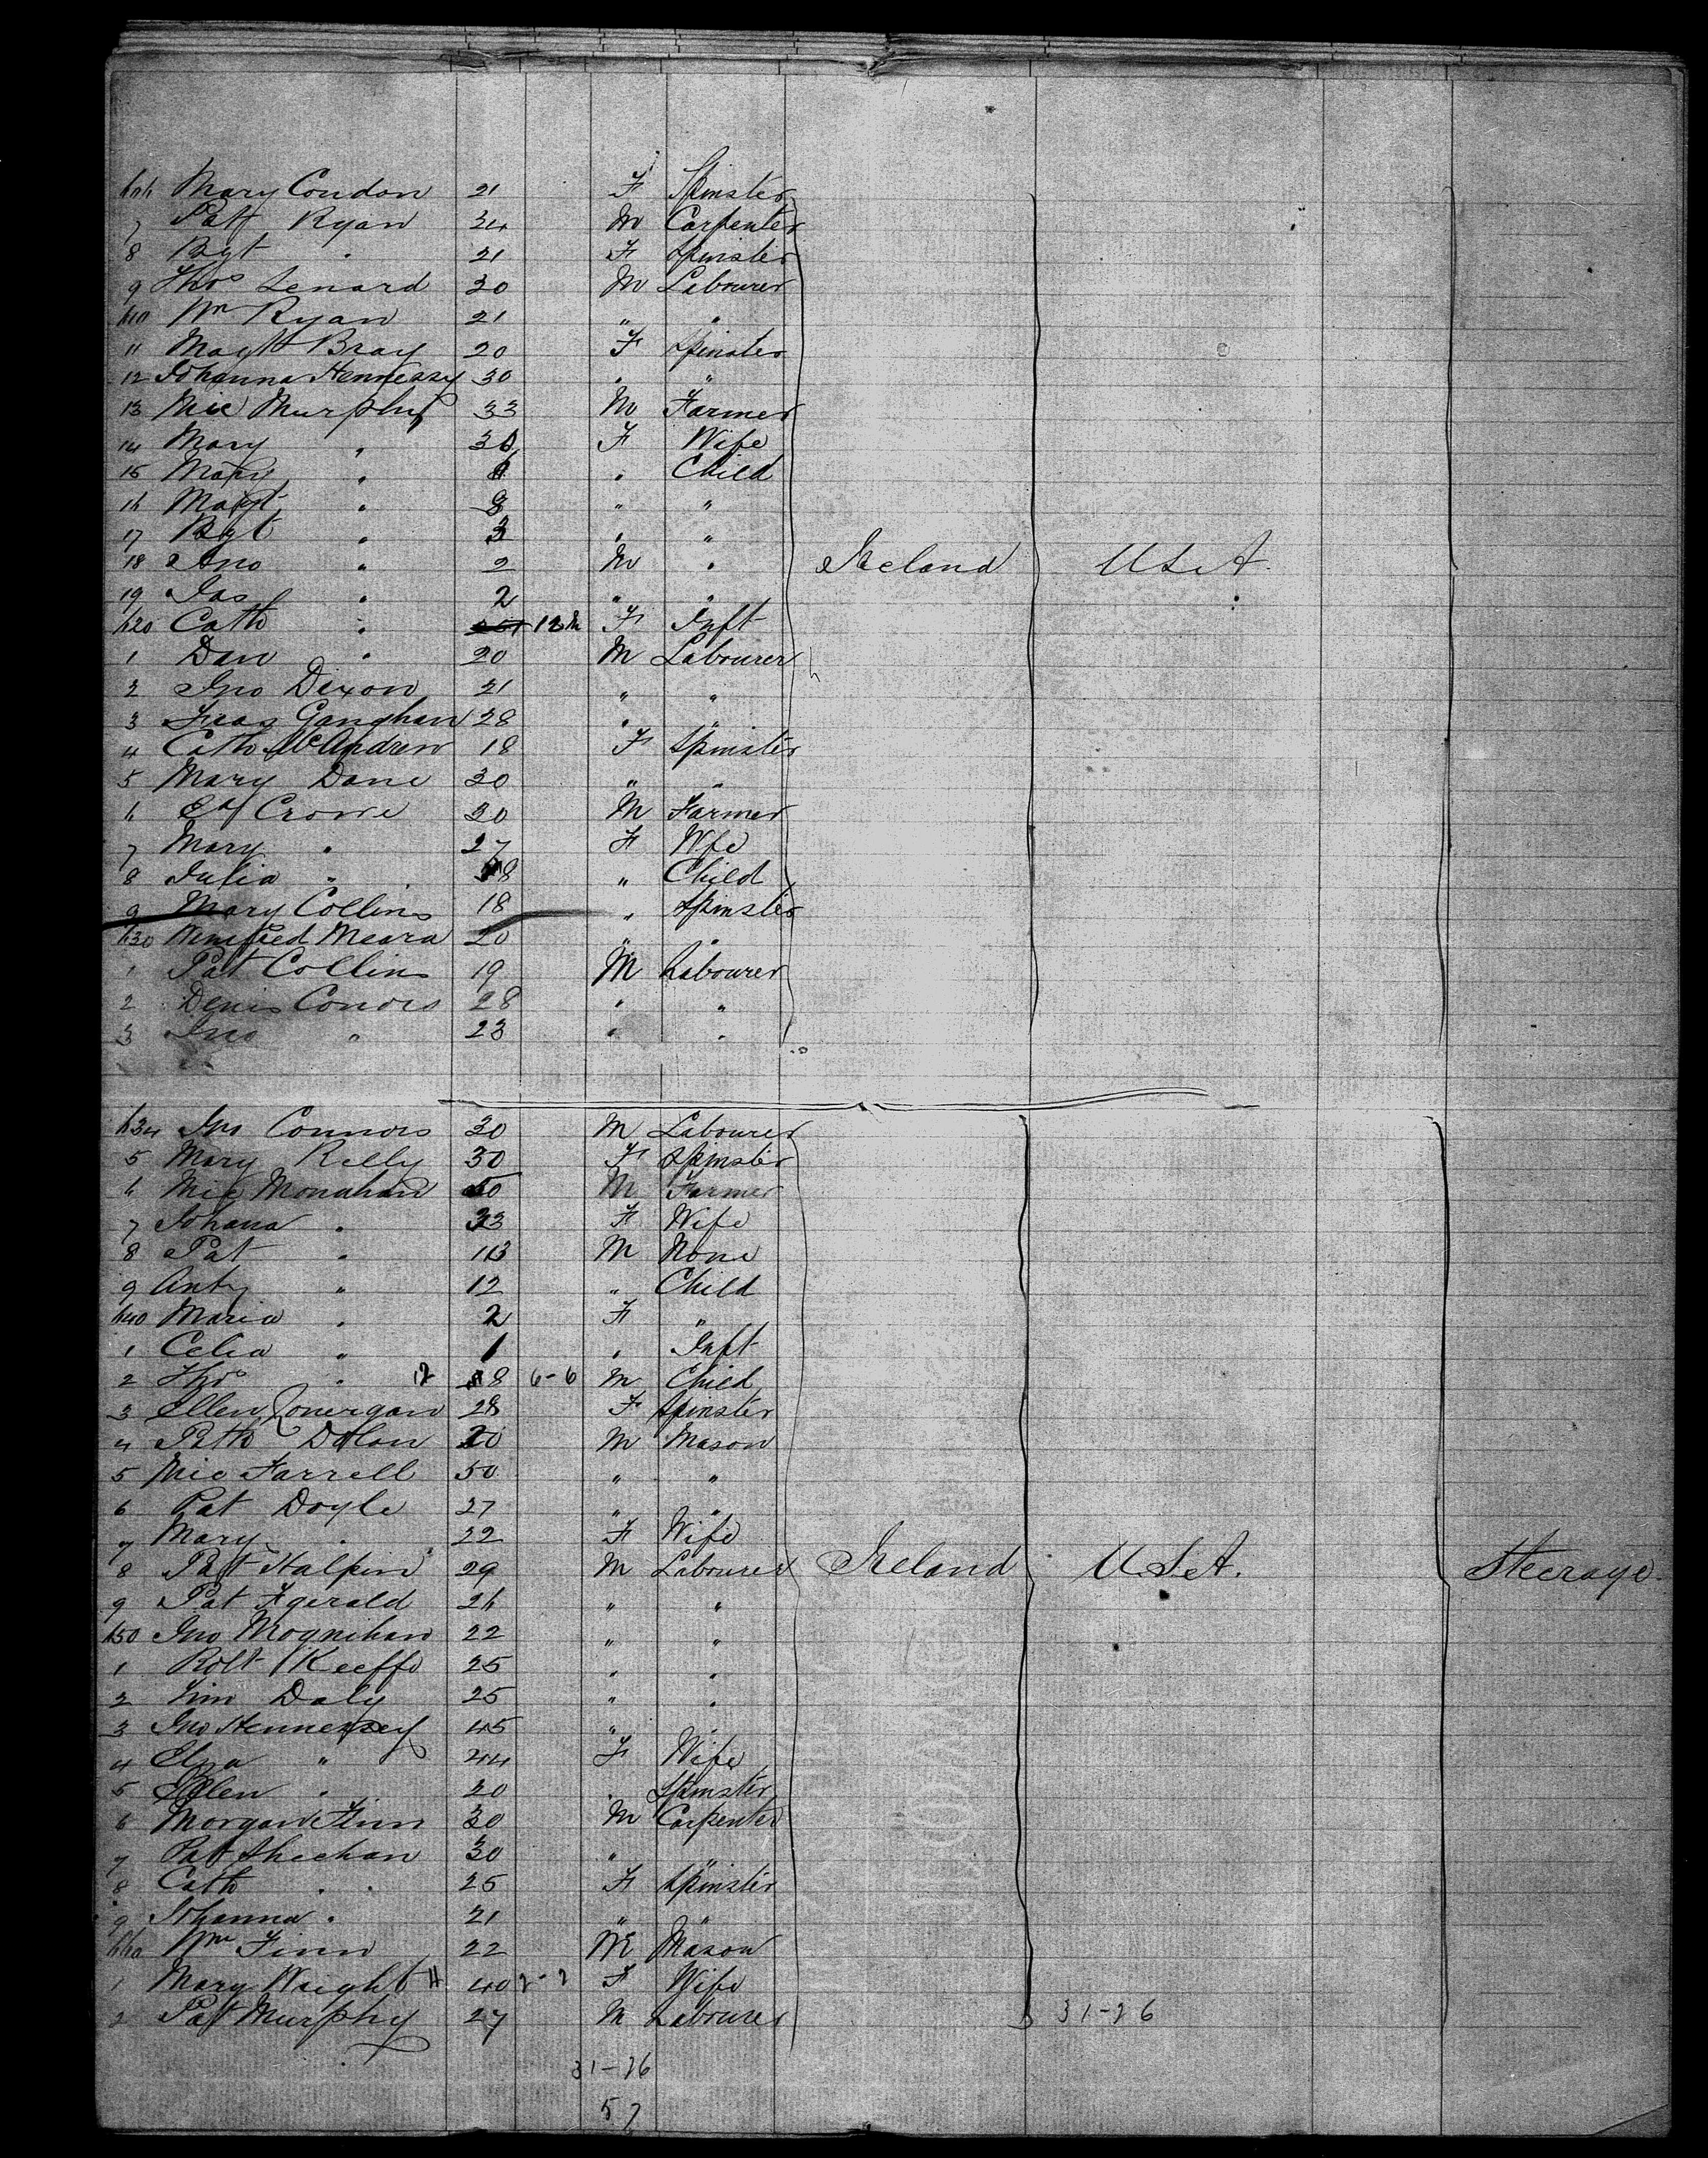 606 Mary Condon 21 F Spinster
7 Patk Ryan 34 M Carpenter
8 Bgt " 21 F Spinster
9 Thos Lenard 30 M Labourer
610 Wm Ryan 21 " "
11 Magtt Bray 20 F Spinster
12 Johanna Hennessy 30 " "
13 Mic Murphy 33 M Farmer
14 Mary " 30 F Wife
15 Mary " " Child
16 Magt " 8 " "
17 Bgt " 3 " "
18 Jno " 2 M "
19 Jas " 2 " "
620 Cath " 12 F Inft
1 Dan " 20 M Labourer
2 Jno Dixon 21 " "
3 Fras Ganghan 28 " "
4 Cath McAndrew 18 F Spinster
5 Mary Dane 30 " "
6 Ed Crowe 30 M Farmer
7 Mary " 27 F Wfe
8 Julia " 8 " Child
9 Mary Collins 18 " Spinster
630 Winifred Meara 20 " "
1 Pat Collins 19 M Labourer
2 Denis Conors 28 " "
3 Jno " 23 " "
Ireland U.S.A.
634 Jno Connors 30 M Labourer
5 Mary Kelly 30 F Spinster
6 Mic Monahan 50 M Farmer
7 Johana " 33 F Wife
8 Pat " 13 M None
9 Anty " 12 " Child
640 Maria " 2 F "
1 Celia " 1 " Inft
2 Thos " 12 8 6-6 M Child
3 Ellen Lonergan 28 F Spinster
4 Patk Dolan 20 M Mason
5 Mic Farrell 50 " "
6 Pat Doyle 27 " "
7 Mary " 22 F Wife
8 Pat Halpin 29 M Labourer Ireland U.S.A. Steerage
9 Pat Fgerald 26 " "
650 Jno Moynihan 22 " "
1 Robt Keeffe 25 " "
2 Tim Daly 25 " "
3 Jno Hennessey 45 " "
4 Elza " 44 F Wife
5 Ellen " 20 " Spinster
6 Morgan Finn 30 M Carpenter
7 Pat Sheehan 30 " "
8 Cath " 25 F Spinster
9 Johanna " 21 " "
660 Wm Finn 22 M Mason
1 Mary Wright H 40 2-2 F Wife
2 Pat Murphy 27 M Labourer
31-26
31-26
57